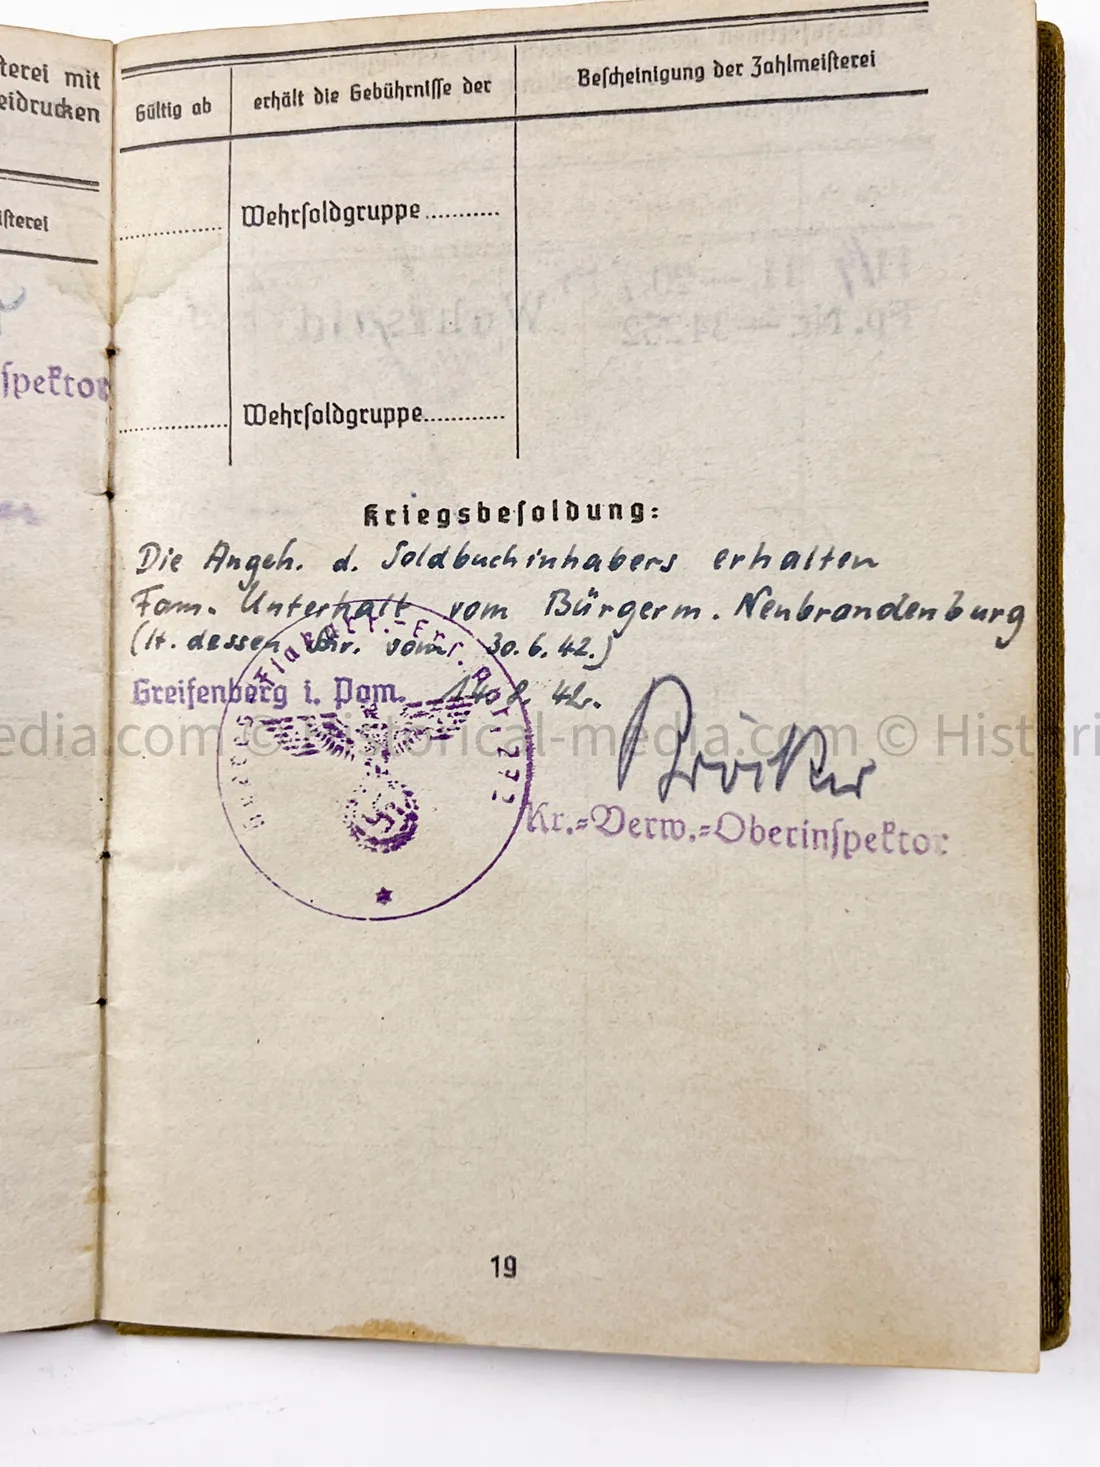 terei mit
eidrucken
isterei
spektor
Gültig ab
erhält die Gebührnisse der
Bescheinigung der Zahlmeisterei
Wehrsoldgruppe
Wehrsoldgruppe
Kriegsbesoldung:
Die Angeh. d. Soldbuchinhabers erhalten
Fam. Unterhalt vom Bürgerm. Neubrandenburg
(lt. dessen Schr. vom 30.6.42.)
Greifenberg i. Pom. 42.
Kr.=Verw.=Oberinspektor
edia.com © Historical-media.com © Histori
19